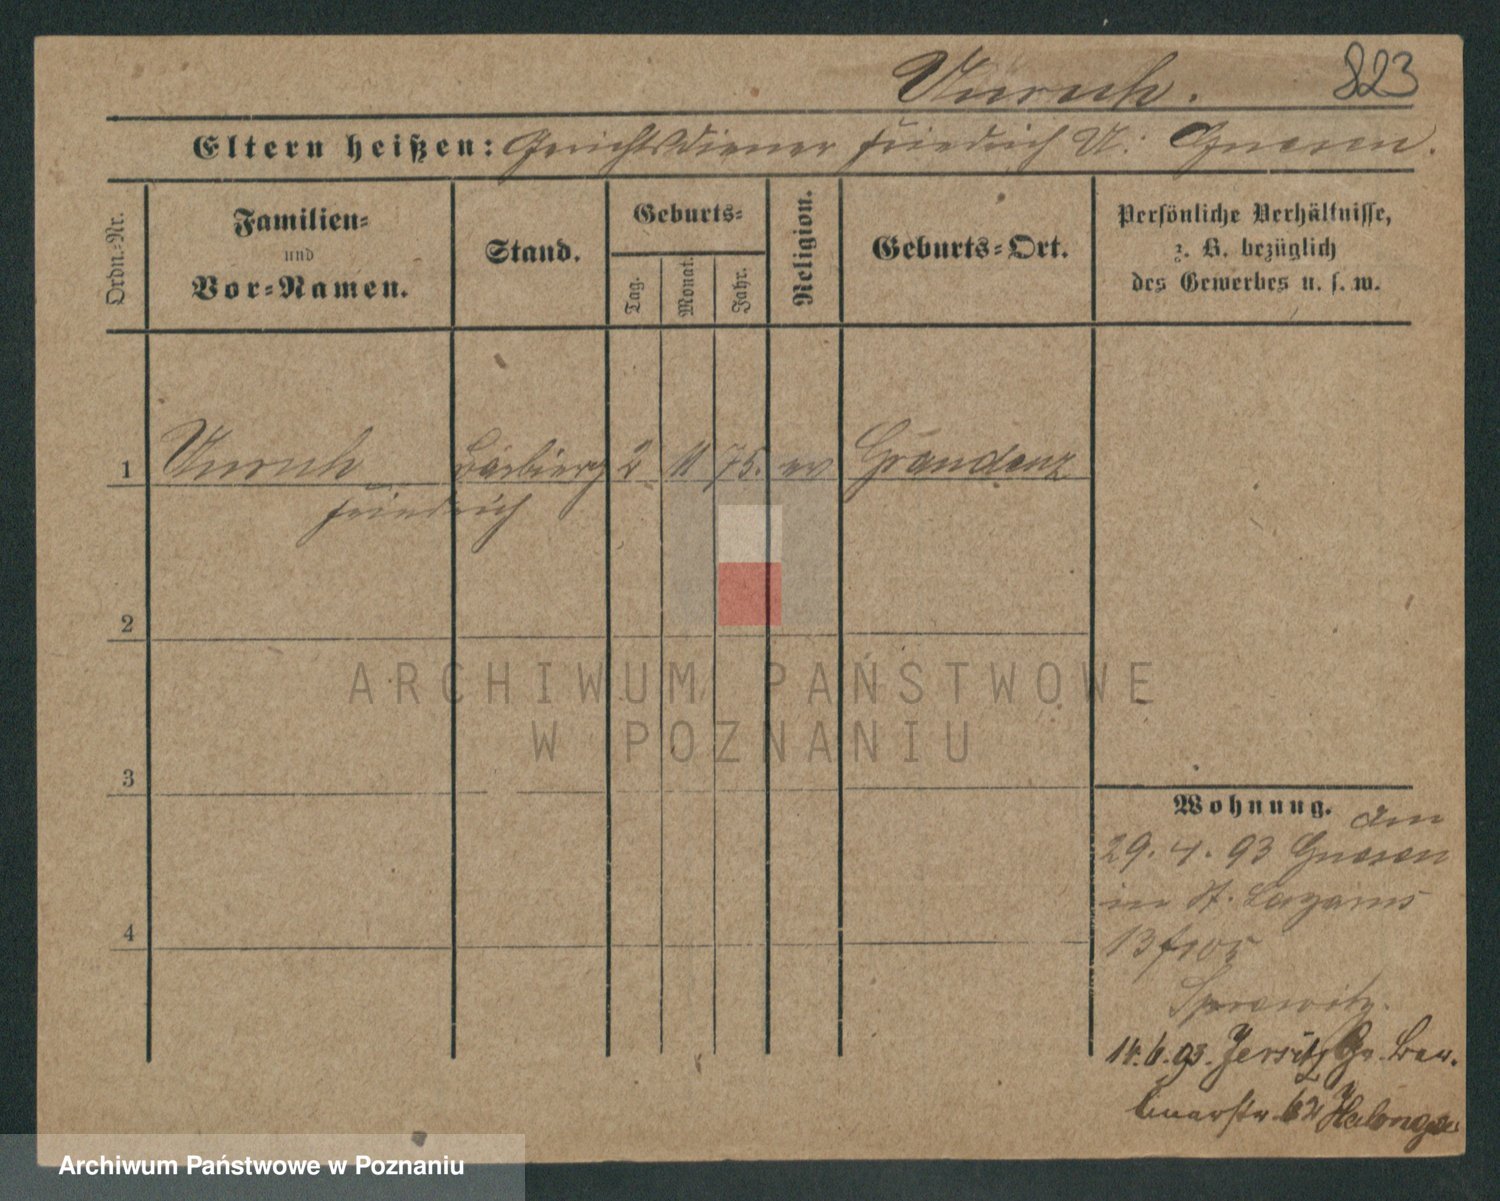 Unruh. 823
Eltern heißen: Gerichtsdiener Friedrich U. Gnesen.
Ordn.-Nr.
Familien-
und
Vor-Namen.
Stand.
Geburts-
Tag.
Monat.
Jahr.
Religion.
Geburts-Ort.
Persönliche Verhältnisse,
z. B. bezüglich
des Gewerbes u. s. w.
1 Unruh Barbierg 2 11 75. ev Graudenz
Friedrich
2
3
4
Wohnung. am
29. 4. 93 Gnesen
in St. Lazarus
13
14.6.93. Jersitz Gr. Ber-
linerstr. 62
ARCHIWUM PAŃSTWOWE
W POZNANIU
Archiwum Państwowe w Poznaniu